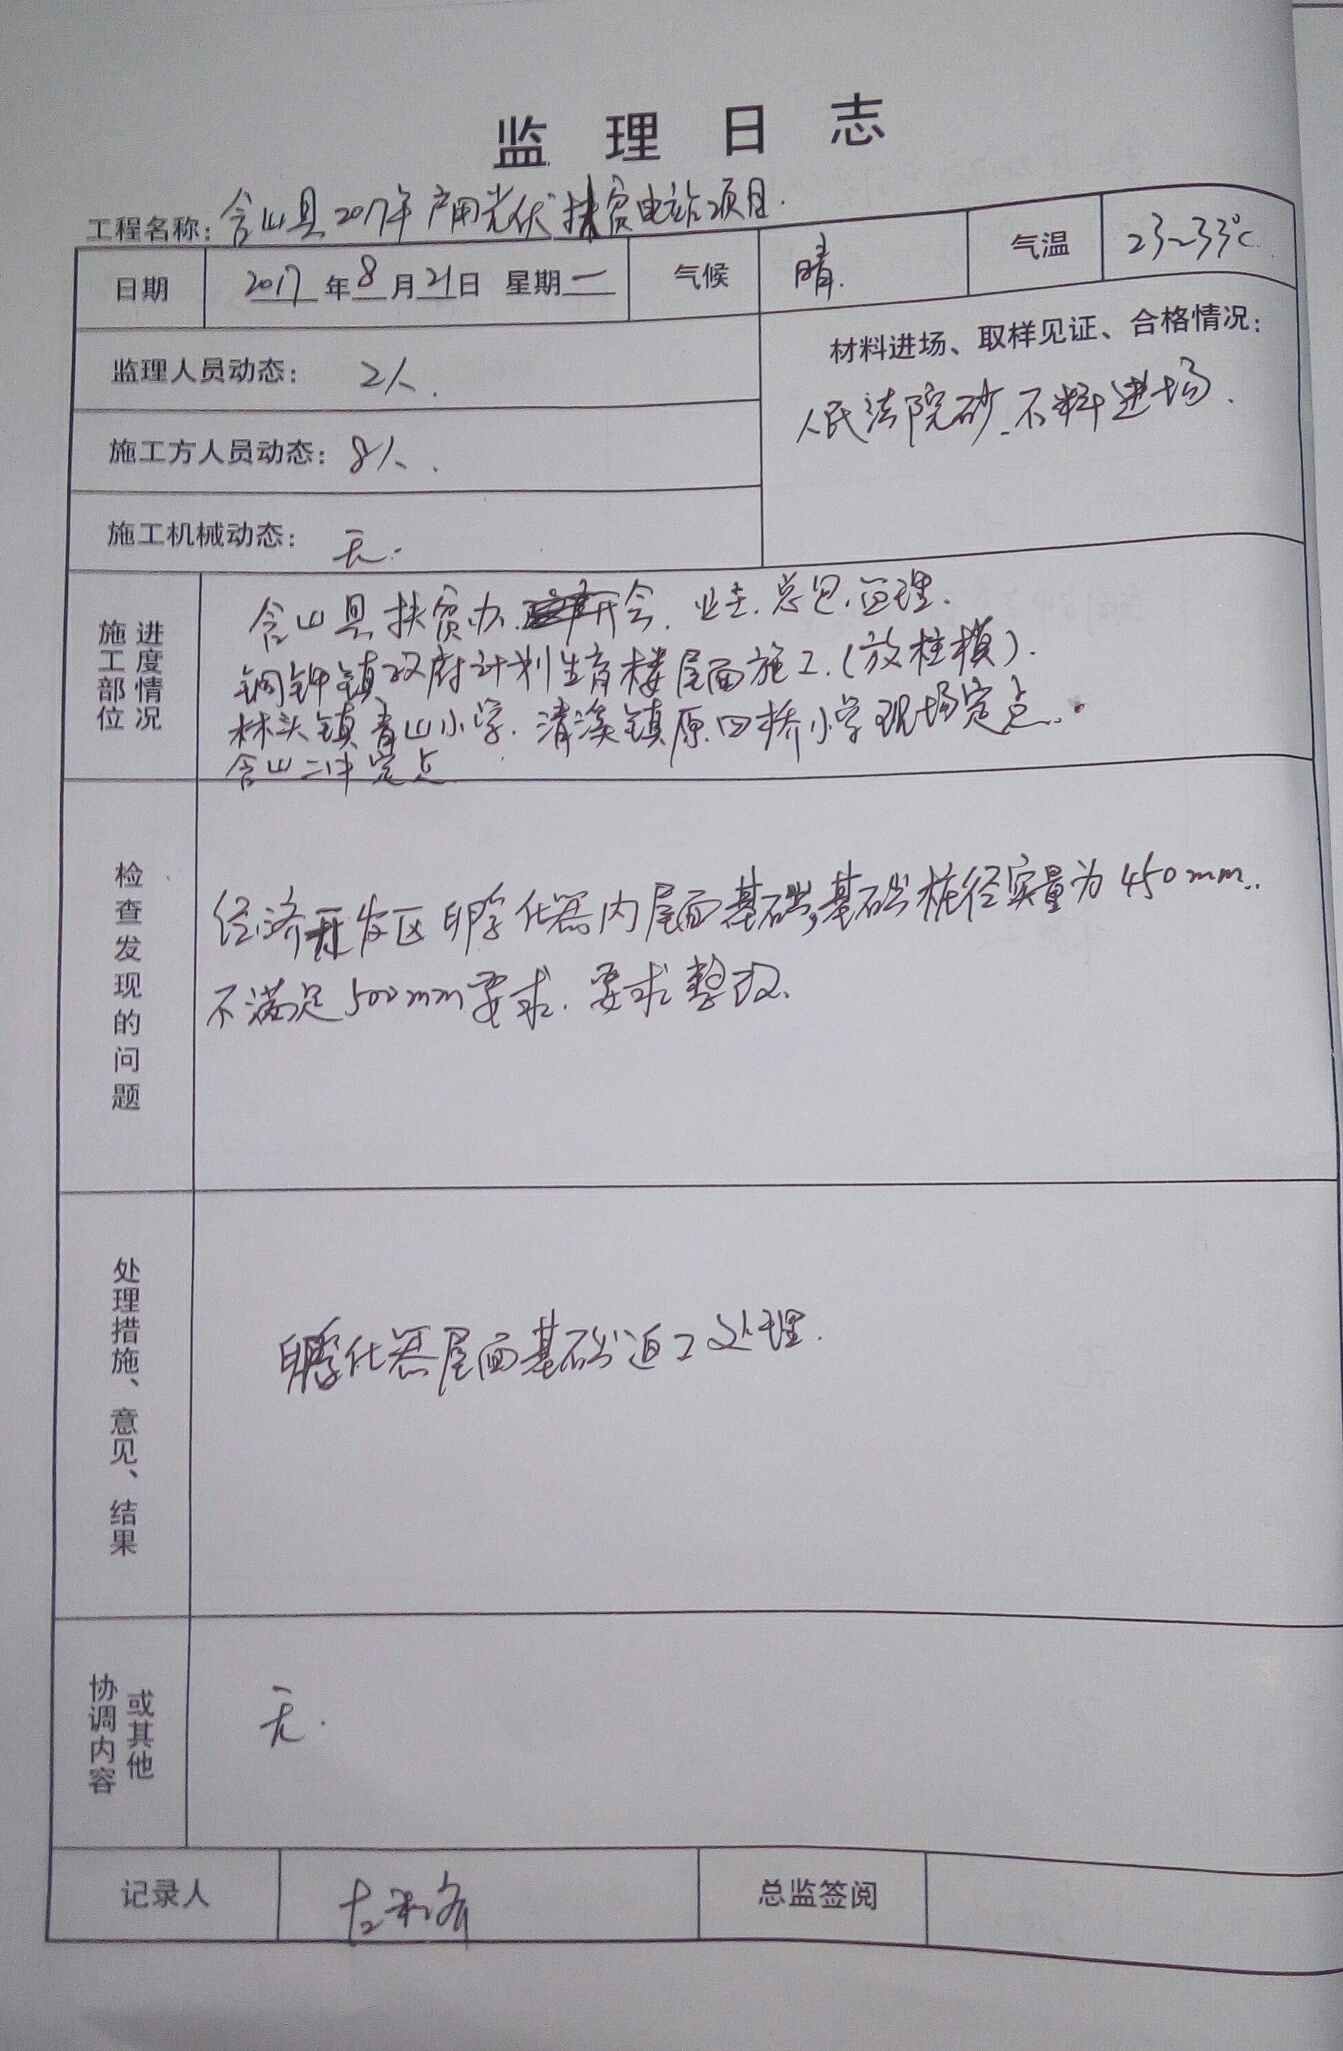 监理日志
工程名称：含山县2017年户用光伏扶贫电站项目.
日期 2017年8月21日 星期一 气候 晴. 气温 23~33℃
监理人员动态： 2人.
材料进场、取样见证、合格情况：
人民法院砂.石料进场.
施工方人员动态： 8人.
施工机械动态： 无.
施工部位
进度情况
含山县扶贫办 开会. 业主.总包.监理.
铜闸镇政府计划生育楼屋面施工.(放柱模).
林头镇青山小学.清溪镇原四桥小学现场定点.
含山二中定点
检查发现的问题
经济开发区孵化器内屋面基础,基础桩径实量为450mm.
不满足500mm要求.要求整改.
处理措施、意见、结果
孵化器屋面基础返工处理.
协调内容
或其他
无.
记录人
总监签阅